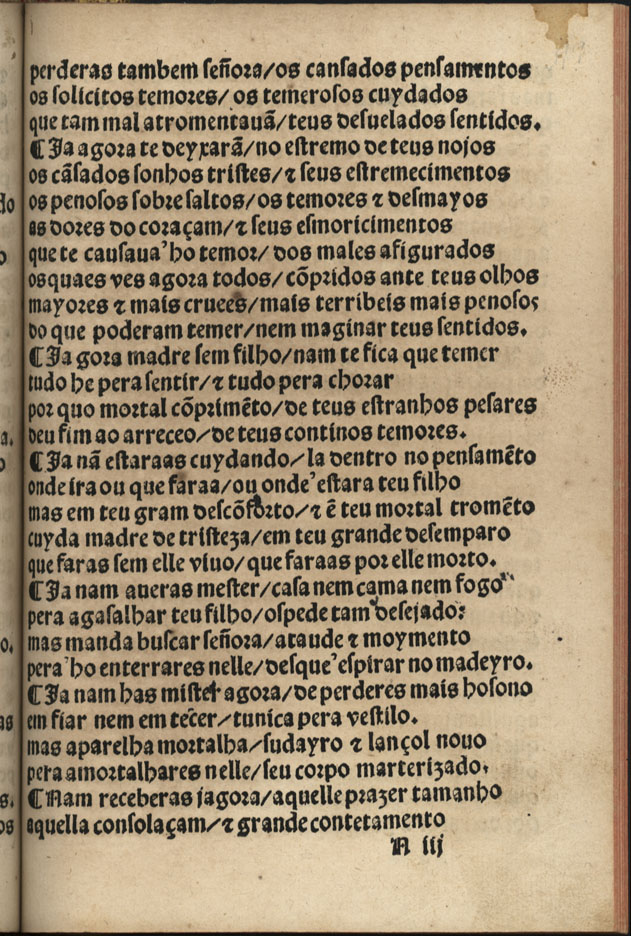 perderas tambem señora/os cansados pensamentos
os solicitos temores/ os temerosos cuydados
que tam mal atromentauã/teus desuelados sentidos.
¶Ja agora te deyxarã/no estremo de teus nojos
os cãsados sonhos tristes/⁊ seus estremecimentos
os penosos sobre saltos/os temores ⁊ desmayos
as dores do coraçam/⁊ seus esmoricimentos
que te causaua'ho temor/ dos males afigurados
os quaes ves agora todos/ cõpridos ante teus olhos
mayores ⁊ mais cruees/mais terribeis mais penosos
do que poderam temer/nem maginar teus sentidos.
¶Ja gora madre sem filho/nam te fica que temer
tudo he pera sentir/⁊ tudo pera chorar
por quo mortal cõprimẽto/de teus estranhos pesares
deu fim ao arreceo/de teus continos temores.
¶Ja nã estaraas cuydando/la dentro no pensamẽto
onde ira ou que faraa/ou onde'estara teu filho
mas em teu gram descõforto/⁊ ẽ teu mortal tromẽto
cuyda madre de tristeza/em teu grande desemparo
que faras sem elle viuo/que faraas por elle morto.
¶Ja nam aueras mester/casa nem cama nem fogo
pera agasalhar teu filho/ospede tam desejado:
mas manda buscar señora/ataude ⁊ moymento
pera'ho enterrares nelle/desque'espirar no madeyro.
¶Ja nam has mister agora/de perderes mais ho sono
em fiar nem em tecer/tunica pera vestilo.
mas aparelha mortalha/sudayro ⁊ lançol nouo
pera amortalhares nelle/seu corpo marterizado.
¶Nam receberas jagora/aquelle prazer tamanho
aquella consolaçam/⁊ grande contetamento
N iij